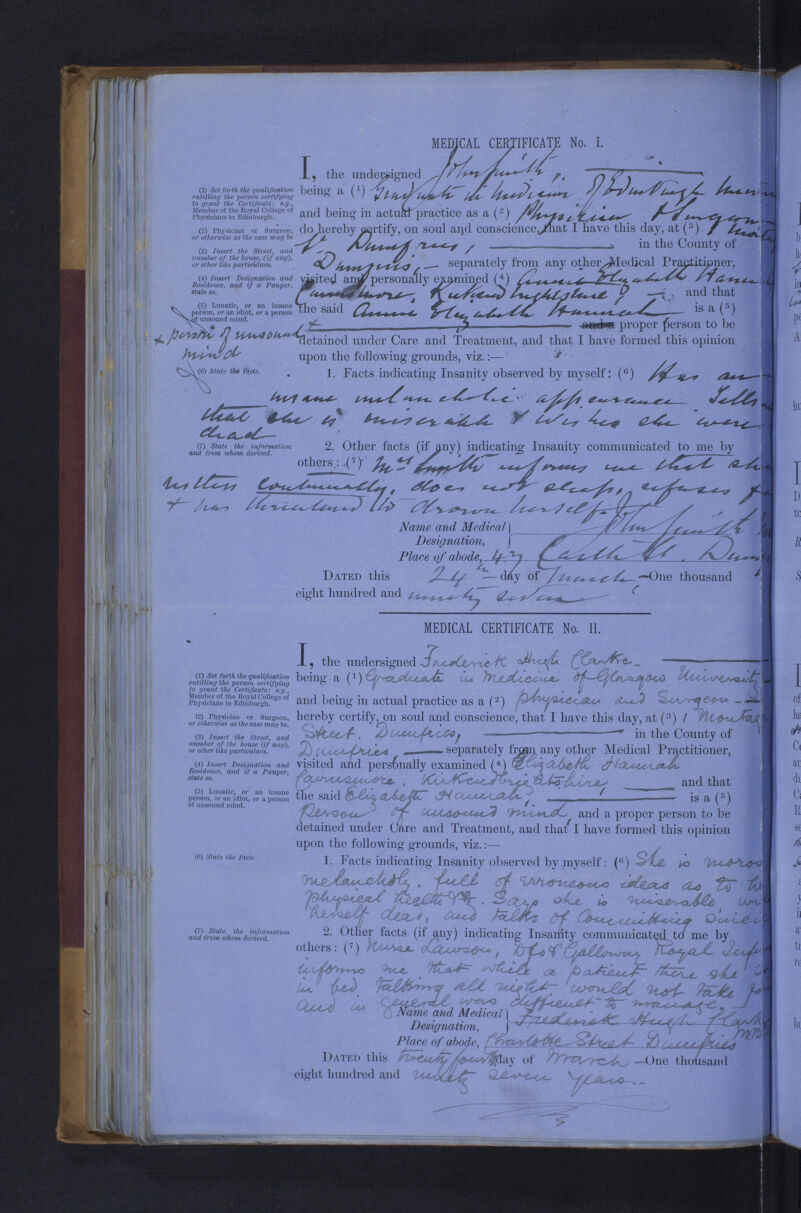 MEDICAL CERTIFICATE No. I.
I, the undersigned John Smith
(1) Set forth the qualification entitling the person certifying to grant the Certificate: e.g., Member of the Royal College of Physicians in Edinburgh.
being a (1) Graduate in Medicine of Edinburgh
and being in actual practice as a (2) Physician & Surgeon
(2) Physician or Surgeon, or otherwise as the case may be
do hereby certify, on soul and conscience, that I have this day, at (3)
(3) Insert the Street, and number of the house, (if any), or other like particulars.
Dumfries, in the County of
Dumfries, separately from any other Medical Practitioner,
(4) Insert Designation and Residence, and if a Pauper, state so.
visited and personally examined (4) Annie Elizabeth
and that
(5) Lunatic, or an insane person, or an idiot, or a person of unsound mind.
the said Annie Elizabeth Hannah is a (5)
+ and a proper person to be
+ person of unsound mind
detained under Care and Treatment, and that I have formed this opinion
upon the following grounds, viz.:—
(6) State the facts.
1. Facts indicating Insanity observed by myself: (6) Has an
insane melancholic appearance Tells
that she is miserable & wishes she were
dead
(7) State the information and from whom derived.
2. Other facts (if any) indicating Insanity communicated to me by
others: (7) Mrs Smith informs me that
continually, does not sleep, refuses
+ has threatened to drown herself
Name and Medical Designation, John Smith
Place of abode, 47 Castle St.
DATED this 24th day of March One thousand
eight hundred and ninety seven
MEDICAL CERTIFICATE No. II.
I, the undersigned Frederick Hugh Clarke
(1) Set forth the qualification entitling the person certifying to grant the Certificate: e.g., Member of the Royal College of Physicians in Edinburgh.
being a (1) Graduate in Medicine of Glasgow University
and being in actual practice as a (2) physician and Surgeon
(2) Physician or Surgeon, or otherwise as the case may be.
hereby certify, on soul and conscience, that I have this day, at (3) 1
(3) Insert the Street, and number of the house (if any), or other like particulars.
Street. Dumfries, in the County of
Dumfries, separately from any other Medical Practitioner,
(4) Insert Designation and Residence, and if a Pauper, state so.
visited and personally examined (4) Elizabeth Hannah
Kirkcudbrightshire, and that
(5) Lunatic, or an insane person, or an idiot, or a person of unsound mind.
the said Elizabeth Hannah, is a (5)
Person of unsound mind, and a proper person to be
detained under Care and Treatment, and that I have formed this opinion
upon the following grounds, viz.:—
(6) State the facts
1. Facts indicating Insanity observed by myself: (6) She is
melancholy. full of erroneous ideas as to
physical health &c. Says she is miserable,
herself dead, and talks of committing
(7) State the information and from whom derived.
2. Other facts (if any) indicating Insanity communicated to me by
others: (7) Nurse Lawson, Dfs & Galloway Royal
informs me that while a patient there she
in bed talking all night would not take
and in general was difficult to manage.
Name and Medical Designation, Frederick Hugh
Place of abode, Charlotte Street Dumfries
DATED this twenty fourth day of March One thousand
eight hundred and ninety seven years.